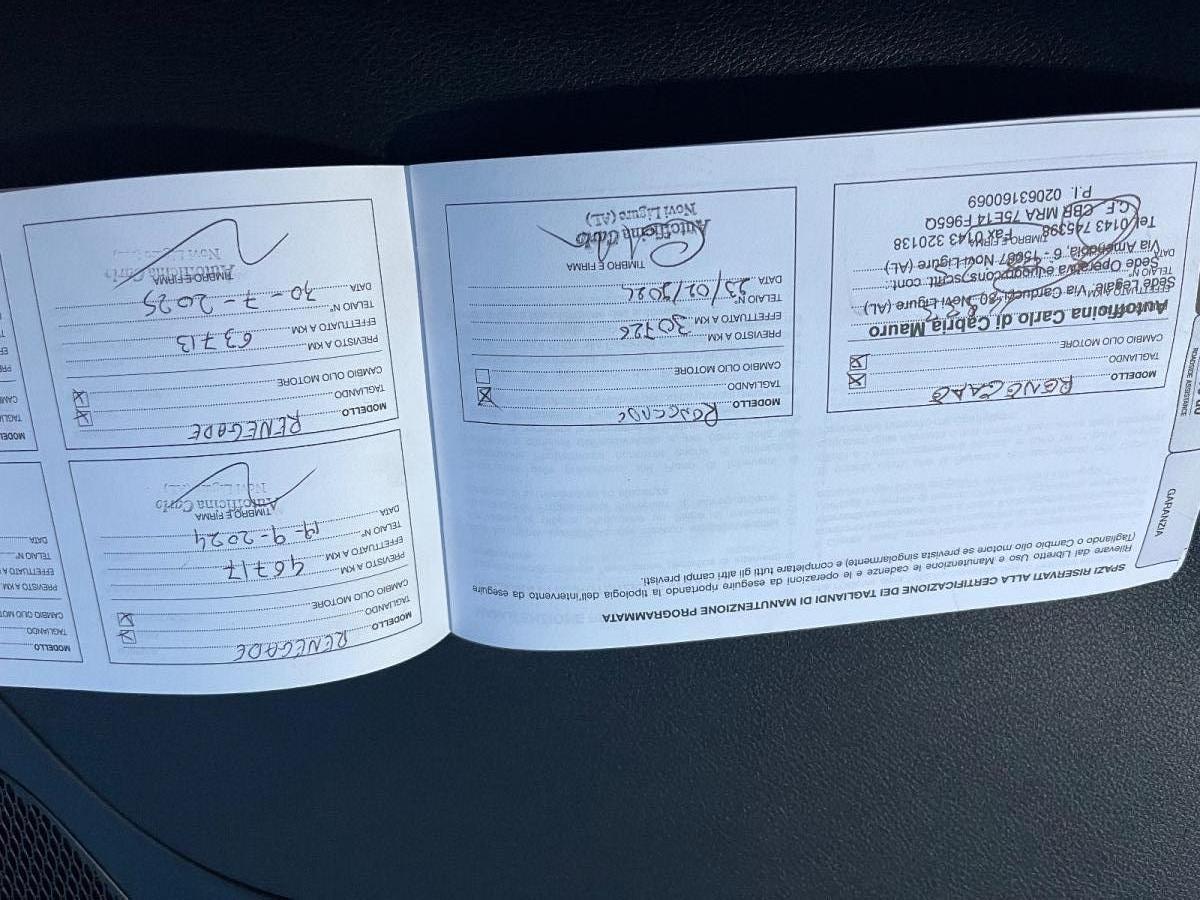 SPAZI RISERVATI ALLA CERTIFICAZIONE DEI TAGLIANDI DI MANUTENZIONE PROGRAMMATA
Rilevare dal Libretto Uso e Manutenzione le cadenze e le operazioni da eseguire riportando la tipologia dell'intervento da eseguire
(Tagliando o Cambio olio motore se prevista singolarmente) e completare tutti gli altri campi previsti.
GARANZIA
ROADSIDE ASSISTANCE
MODELLO
TAGLIANDO
CAMBIO OLIO MOTORE
Autofficina Carlo di Cabria Mauro
Sede Legale: Via Carducci, 80 Novi Ligure (AL)
Sede Operativa e luogo cons. scritt. cont.:
Via Amendola, 6 - 15067 Novi Ligure (AL)
Tel. 0143 745398 Fax 0143 320138
C.F. CBR MRA 75E14 F965Q
P.I. 02063160069
MODELLO
TAGLIANDO
CAMBIO OLIO MOTORE
PREVISTO A KM
EFFETTUATO A KM 30726
TELAIO N°
DATA 23/02/202
TIMBRO E FIRMA
Autofficina Carlo
Novi Ligure (AL)
MODELLO RENEGADE
TAGLIANDO
CAMBIO OLIO MOTORE
PREVISTO A KM
EFFETTUATO A KM 46717
TELAIO N°
DATA 19-9-2024
TIMBRO E FIRMA
Autofficina Carlo
MODELLO RENEGADE
TAGLIANDO
CAMBIO OLIO MOTORE
PREVISTO A KM
EFFETTUATO A KM 63713
TELAIO N°
DATA 30-7-2025
TIMBRO E FIRMA
Autofficina Carlo
MODELLO
TAGLIANDO
CAMBIO OLIO
PREVISTO A KM
EFFETTUATO A
TELAIO N°
DATA